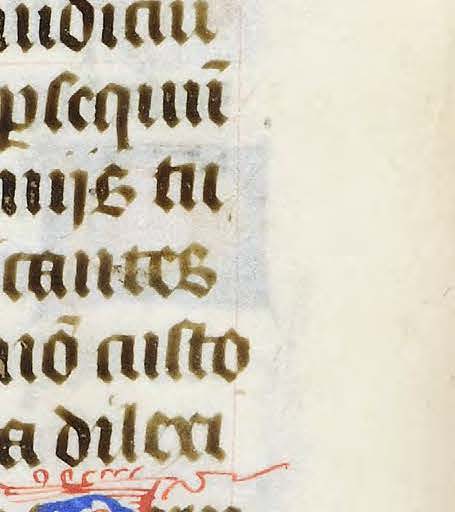 iudiciu
ꝑsequuū
nijs tu
cantes
nō custo
a dilexi